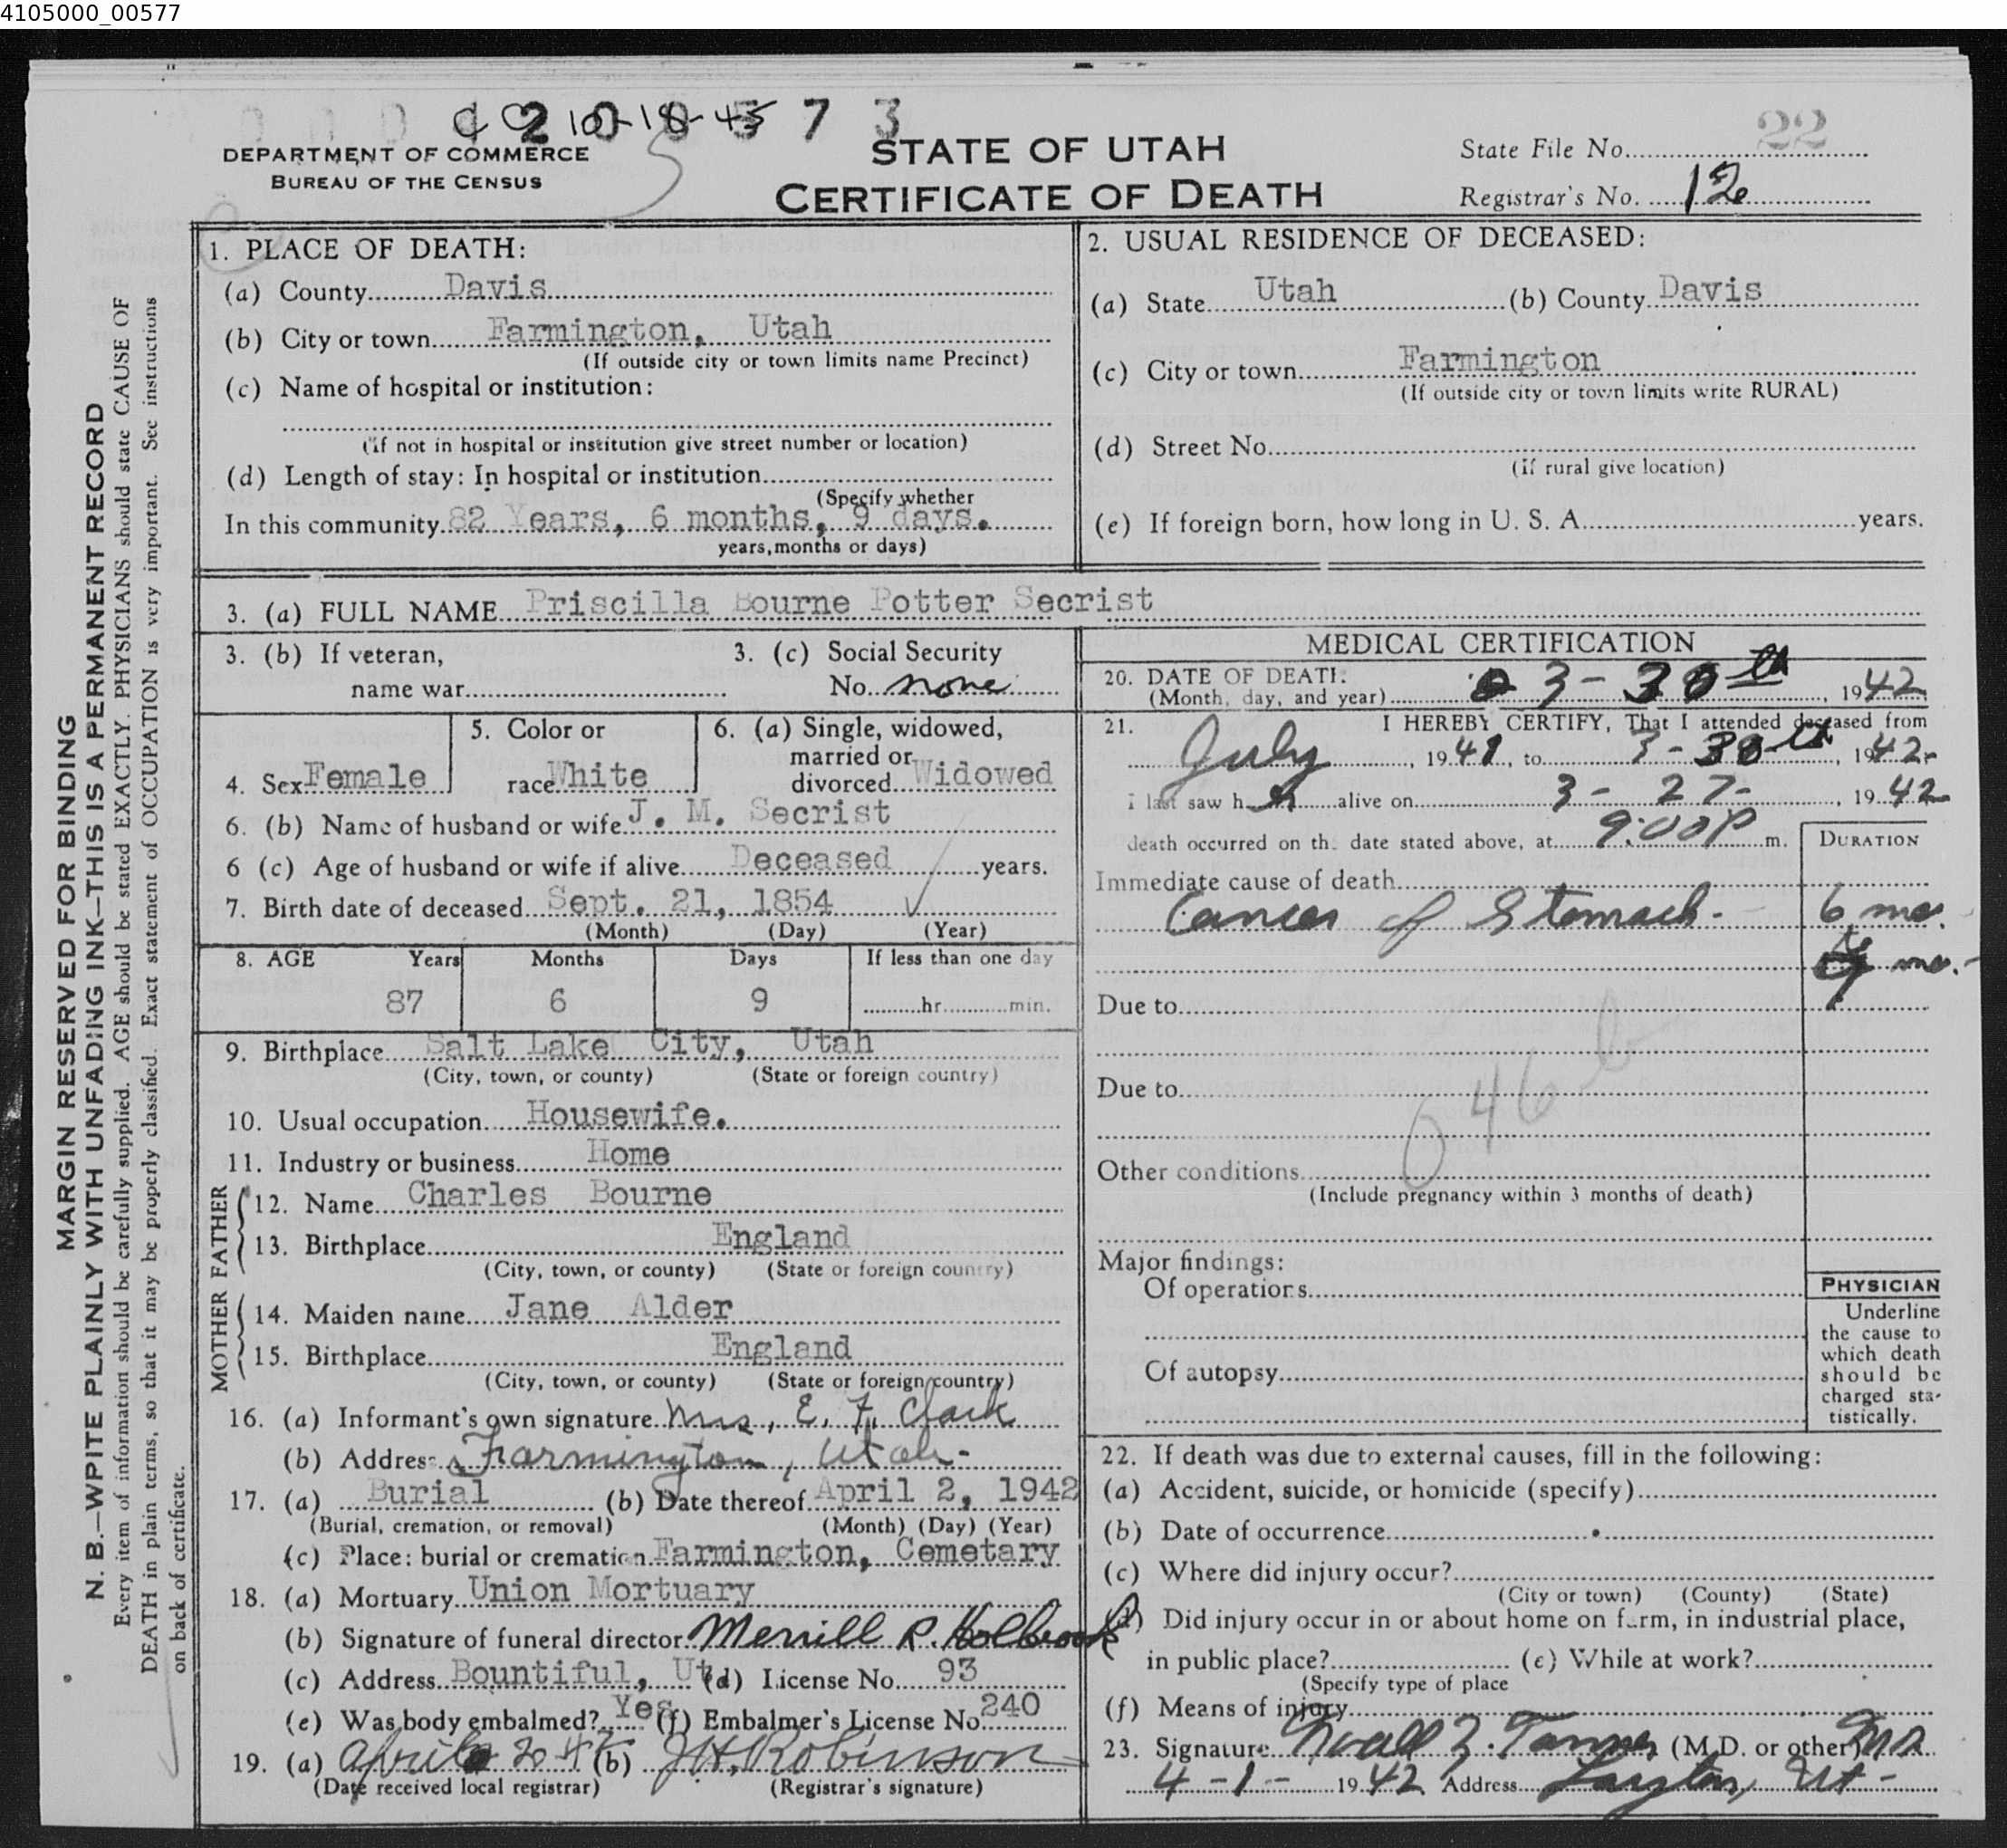 4105000_00577
10-18-45
DEPARTMENT OF COMMERCE
BUREAU OF THE CENSUS
STATE OF UTAH
CERTIFICATE OF DEATH
State File No. 22
Registrar's No. 12
MARGIN RESERVED FOR BINDING
N. B.—WRITE PLAINLY WITH UNFADING INK—THIS IS A PERMANENT RECORD
Every item of information should be carefully supplied. AGE should be stated EXACTLY. PHYSICIANS should state CAUSE OF
DEATH in plain terms, so that it may be properly classified. Exact statement of OCCUPATION is very important. See instructions
on back of certificate.
1. PLACE OF DEATH:
(a) County Davis
(b) City or town Farmington, Utah
(If outside city or town limits name Precinct)
(c) Name of hospital or institution:
(if not in hospital or institution give street number or location)
(d) Length of stay: In hospital or institution
(Specify whether
In this community 82 Years, 6 months, 9 days.
years, months or days)
2. USUAL RESIDENCE OF DECEASED:
(a) State Utah (b) County Davis
(c) City or town Farmington
(If outside city or town limits write RURAL)
(d) Street No.
(if rural give location)
(e) If foreign born, how long in U. S. A. years.
3. (a) FULL NAME Priscilla Bourne Potter Secrist
3. (b) If veteran, 3. (c) Social Security
name war No. none
4. Sex Female
5. Color or
race White
6. (a) Single, widowed,
married or
divorced Widowed
6. (b) Name of husband or wife J. M. Secrist
6 (c) Age of husband or wife if alive Deceased years.
7. Birth date of deceased Sept. 21, 1854
(Month) (Day) (Year)
8. AGE Years Months Days If less than one day
87 6 9 hr. min.
9. Birthplace Salt Lake City, Utah
(City, town, or county) (State or foreign country)
10. Usual occupation Housewife.
11. Industry or business Home
FATHER
12. Name Charles Bourne
13. Birthplace England
(City, town, or county) (State or foreign country)
MOTHER
14. Maiden name Jane Alder
15. Birthplace England
(City, town, or county) (State or foreign country)
16. (a) Informant's own signature Mrs, E. F. Clark
(b) Address Farmington, Utah-
17. (a) Burial (b) Date thereof April 2, 1942
(Burial, cremation, or removal) (Month) (Day) (Year)
(c) Place: burial or cremation Farmington, Cemetary
18. (a) Mortuary Union Mortuary
(b) Signature of funeral director Merrill R. Holbrook
(c) Address Bountiful, Ut (d) License No. 93
(e) Was body embalmed? Yes (f) Embalmer's License No. 240
19. (a) April (b) J.H. Robinson
(Date received local registrar) (Registrar's signature)
MEDICAL CERTIFICATION
20. DATE OF DEATH:
(Month, day, and year) 3-30th, 1942
21. I HEREBY CERTIFY, That I attended deceased from
July, 1941, to 3-30th, 1942
I last saw h alive on 3-27-, 1942
death occurred on the date stated above, at 9:00P m.
DURATION
Immediate cause of death
Cancer of Stomach- 6 mo.
mo.-
Due to
Due to
046 b
Other conditions
(Include pregnancy within 3 months of death)
Major findings:
Of operations
Of autopsy
PHYSICIAN
Underline
the cause to
which death
should be
charged sta-
tistically.
22. If death was due to external causes, fill in the following:
(a) Accident, suicide, or homicide (specify)
(b) Date of occurrence
(c) Where did injury occur?
(City or town) (County) (State)
(d) Did injury occur in or about home on farm, in industrial place,
in public place? (e) While at work?
(Specify type of place
(f) Means of injury
23. Signature Noall Z. Tanner (M.D. or other) MD
4-1-1942 Address Layton, Ut-